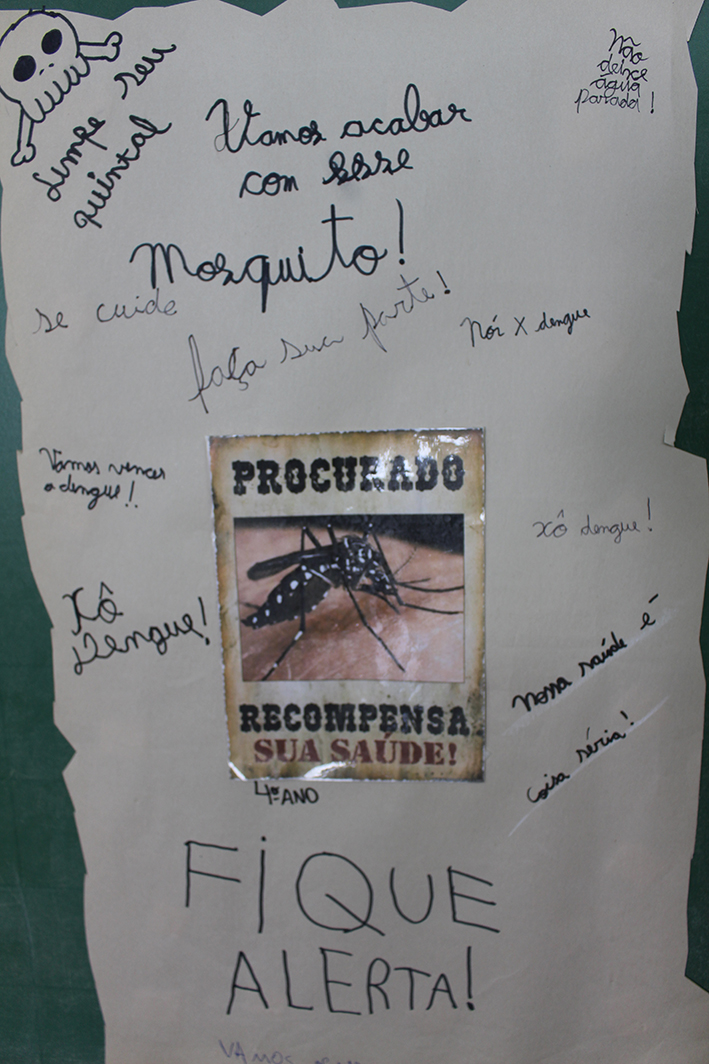 Limpe seu
quintal
Não
deixe
água
parada!
Vamos acabar
com esse
Mosquito!
se cuide
faça sua parte!
Nós X dengue
Vamos vencer
a dengue!!
PROCURADO
RECOMPENSA
SUA SAÚDE!
Xô dengue!
Xô
Dengue!
Nossa saúde é
coisa séria!
4º ANO
FIQUE
ALERTA!
VAMOS